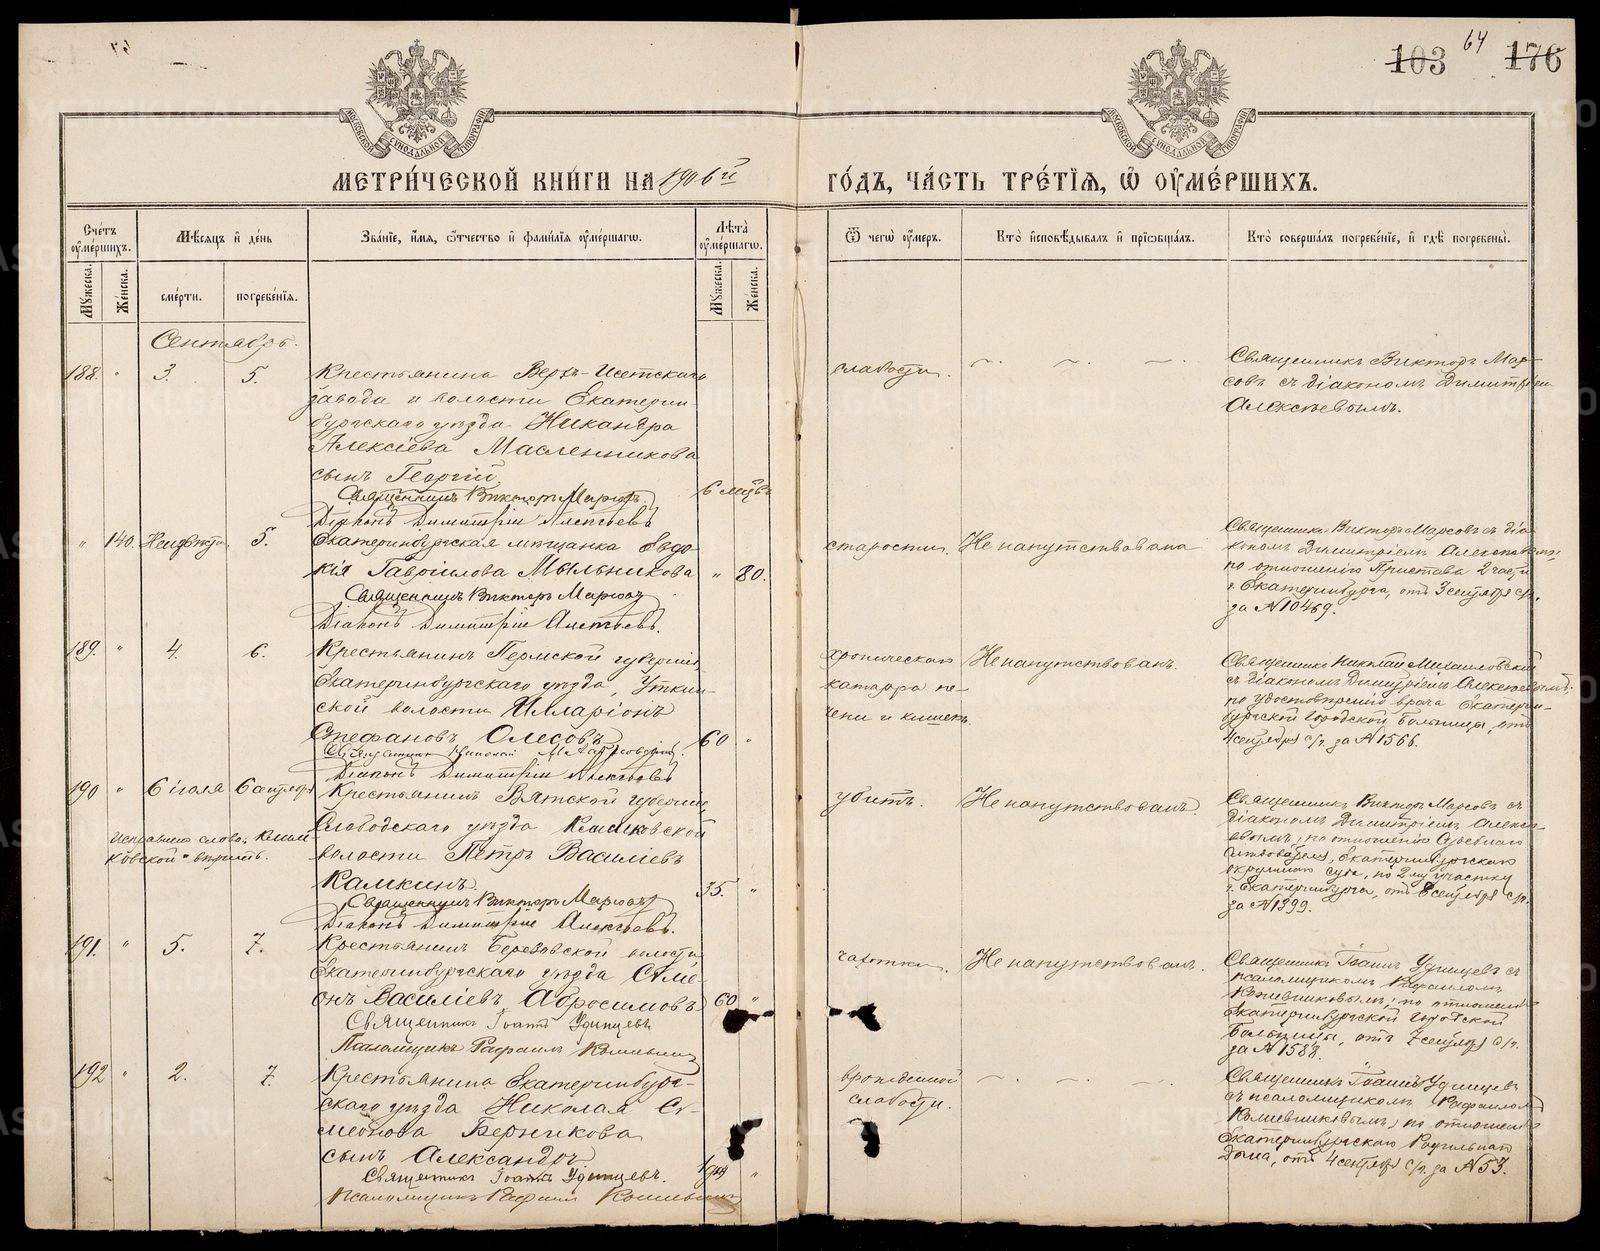 103 64 176
МЕТРИ́ЧЕСКОЙ КНИ́ГИ НА 1906й ГО́ДЪ, ЧА́СТЬ ТРЕ́ТІѦ, Ѿ ОУМЕ́РШИХЪ.
Сче́тъ оуме́ршихъ.
Мѣсѧцъ и де́нь
Зва́нїе, имѧ, ѻтчество и фами́лїѧ оуме́ршагѡ.
Лѣта̀ оуме́ршагѡ.
Ѿ чегѡ̀ оу́меръ.
Кто̀ исповѣдывалъ и прїѡбща́лъ.
Кто̀ соверша́лъ погребе́нїе, и гдѣ̀ погребены̀.
Мꙋжеска.
Же́нска.
сме́рти.
погребе́нїѧ.
Мꙋжеска.
Же́нска.
Сентябрь.
188. " 3. 5.
Крестьянина Верхъ-Исетскаго
завода и волости Екатерин-
бургскаго уѣзда Никандра
Алексѣева Масленникова
сынъ Георгій
6 мцвъ
Священникъ Викторъ Марсовъ.
Діаконъ Димитрій Алексѣевъ
слабости.
Священникъ Викторъ Мар-
совъ съ діакономъ Димитріемъ
Алексѣевымъ.
" 140. Неизвѣстн. 5.
Екатеринбургская мѣщанка Евдо-
кія Гавріилова Мыльникова
" 80.
Священникъ Викторъ Марсовъ
Діаконъ Димитрій Алексѣевъ.
старости. Не напутствована
Священникъ Викторъ Марсовъ съ діа-
кономъ Димитріемъ Алексѣевымъ,
по отношенію Пристава 2 части
г. Екатеринбурга, отъ 3 сентября с/г.
за № 10469.
189. " 4. 6.
Крестьянинъ Пермской губерніи
Екатеринбургскаго уѣзда, Уткин-
ской волости Илларіонъ
Стефановъ Олесовъ
60 "
Діаконъ Димитрій Алексѣевъ
хроническаго
катарра пе-
чени и кишекъ
Не напутствованъ.
Священникъ Николай Михайловскій
съ діакономъ Димитріемъ Алексѣевымъ,
по удостовѣренію врача Екатерин-
бургской Городской Больницы, отъ
4 сентября с/г. за № 1566.
190 " 6 іюля 6 сентября
Исправлено слово: "Климков-
ковской" вѣрно.
Крестьянинъ Вятской губерніи
Слободскаго уѣзда Климковской
волости Петръ Василіевъ
Камкинъ
35. "
Священникъ Викторъ Марсовъ
Діаконъ Димитрій Алексѣевъ.
убитъ. Не напутствованъ.
Священникъ Викторъ Марсовъ съ
діакономъ Димитріемъ Алексѣ-
евымъ, по отношенію Судебнаго
Слѣдователя, Екатеринбургскаго
окружнаго суда, по 2му участку
г. Екатеринбурга, отъ 6 сентября с/г.
за № 1399.
191. " 5. 7.
Крестьянинъ Березовской волости
Екатеринбургскаго уѣзда Симе-
онъ Василіевъ Абросимовъ
60 "
Священникъ Іоаннъ Удинцевъ
Псаломщикъ Рафаилъ
чахотки. Не напутствованъ.
Священникъ Іоаннъ Удинцевъ съ
псаломщикомъ Рафаиломъ
по отношенію
Екатеринбургской Городской
Больницы, отъ 7 сентября с/г.
за № 1583.
192 " 2. 7.
Крестьянина Екатеринбург-
скаго уѣзда Николая Си-
меонова Верникова
сынъ Александръ
1 дня "
Священникъ Іоаннъ Удинцевъ.
Псаломщикъ Рафаилъ
врожденной
слабости.
Священникъ Іоаннъ Удинцевъ
съ псаломщикомъ Рафаиломъ
по отношенію
Екатеринбургскаго Родильнаго
Дома, отъ 4 сентября с/г. за № 53.